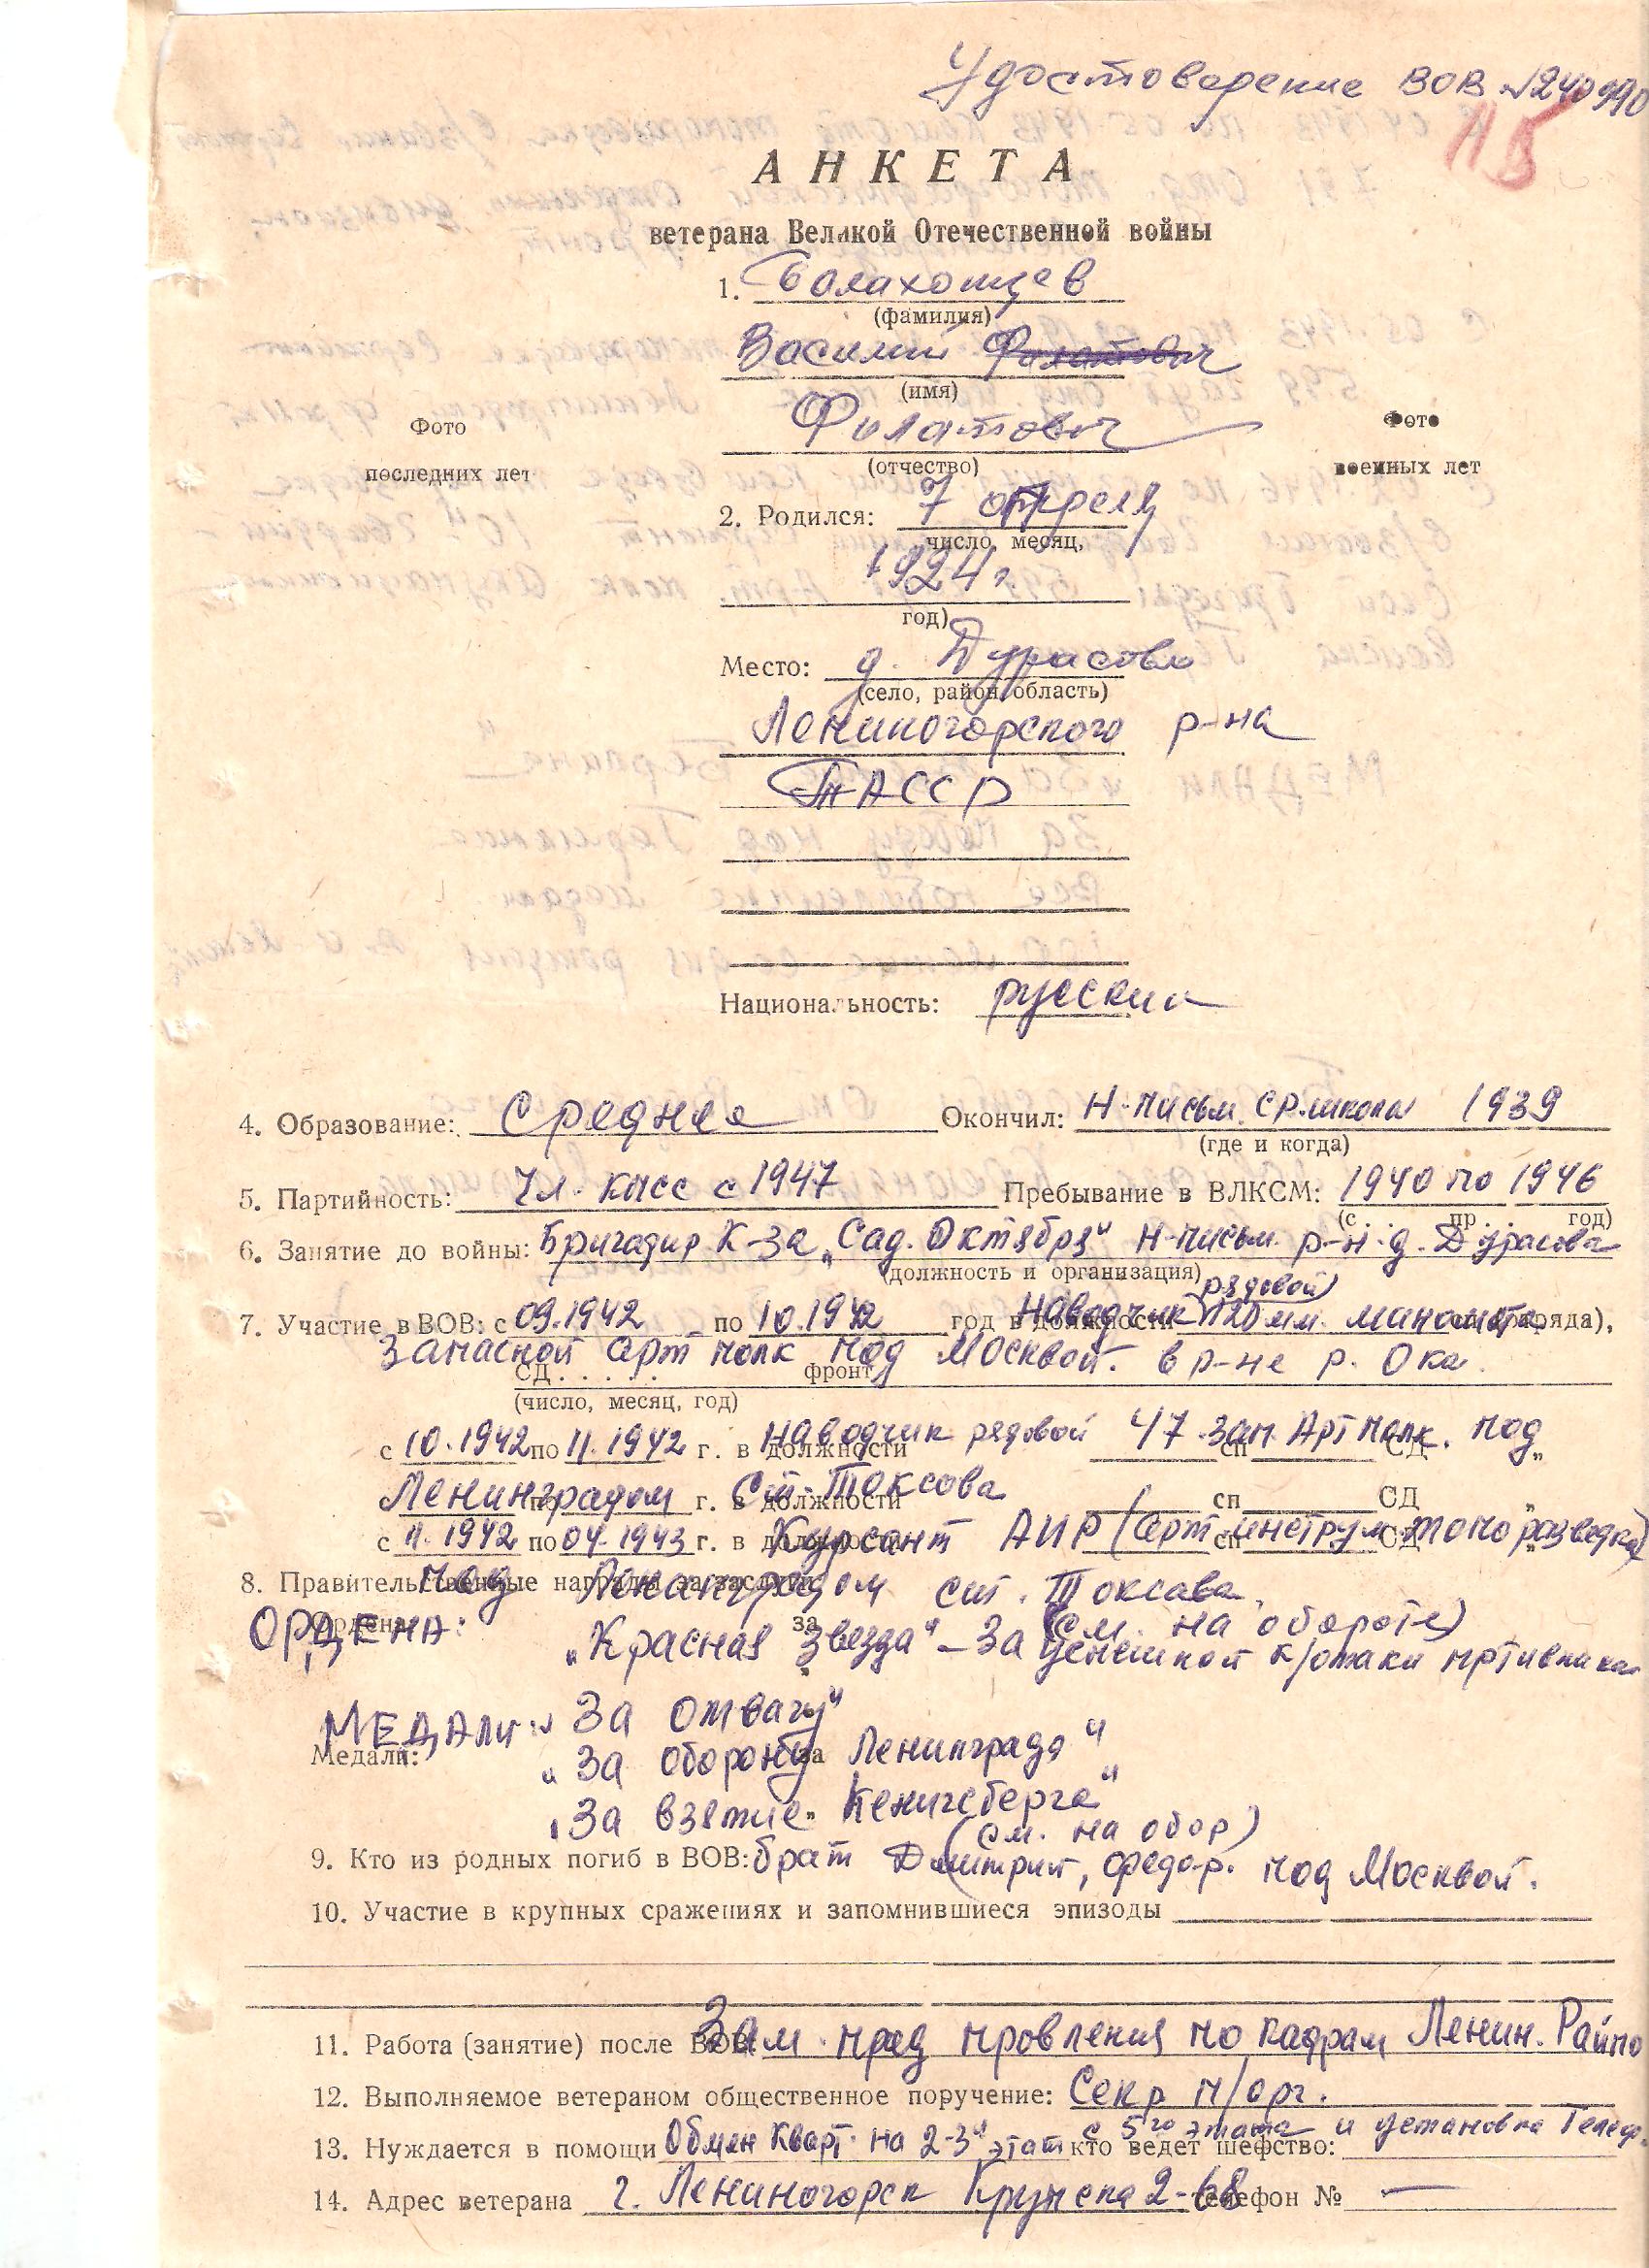 Удостоверение ВОВ №240990
115
АНКЕТА
ветерана Великой Отечественной войны
1. Балахонцев
(фамилия)
Василий Филатович
(имя)
Фото
Филатович
Фото
последних лет
(отчество)
военных лет
2. Родился: 7 апреля
число, месяц,
1924 г
год)
Место: д. Дурасово
(село, район, область)
Лениногорского р-на
ТАССР
Национальность: русский
4. Образование: Среднее Окончил: Н-письм. ср. школы 1939
(где и когда)
5. Партийность: Чл. КПСС с 1947 Пребывание в ВЛКСМ: 1940 по 1946
(с . . пр . . год)
6. Занятие до войны: Бригадир К-за „Сад. Октября" Н-письм. р-н. д. Дурасова
(должность и организация)
рядовой
7. Участие в ВОВ: с 09.1942 по 10.1942 год в должности Наводчик 120 мм. миномета
Запасной арт полк под Москвой. в р-не р. Ока.
СД . . . . . фронт
(число, месяц, год)
с 10.1942 по 11.1942 г. в должности Наводчик рядовой 47 зап. Арт полк. под сп СД „
Ленинградом ст. Токсова по г. в должности сп СД „
с 11.1942 по 04.1943 г. в должности Курсант АИР (арт-инструм. топоразведка) сп СД
8. Правительственные награды за заслуги: под Ленинградом ст. Токсава.
(см. на обороте)
Ордена: ОРДЕНА: за „Красная Звезда" – За успешной к/атаки
МЕДАЛИ: „За отвагу"
Медали: „За оборону Ленинграда" за
„За взятие Кенигсберга"
(см. на обор)
9. Кто из родных погиб в ВОВ: брат Дмитрий, под Москвой.
10. Участие в крупных сражениях и запомнившиеся эпизоды
11. Работа (занятие) после ВОВ: Зам. пред провления по кадрам Ленин. Райпо
12. Выполняемое ветераном общественное поручение: Секр п/орг.
с 5го этажа и установка Телеф.
13. Нуждается в помощи Обмен Кварт. на 2-3й этаж кто ведет шефство:
14. Адрес ветерана г. Лениногорск Крупская 2-68 телефон № —